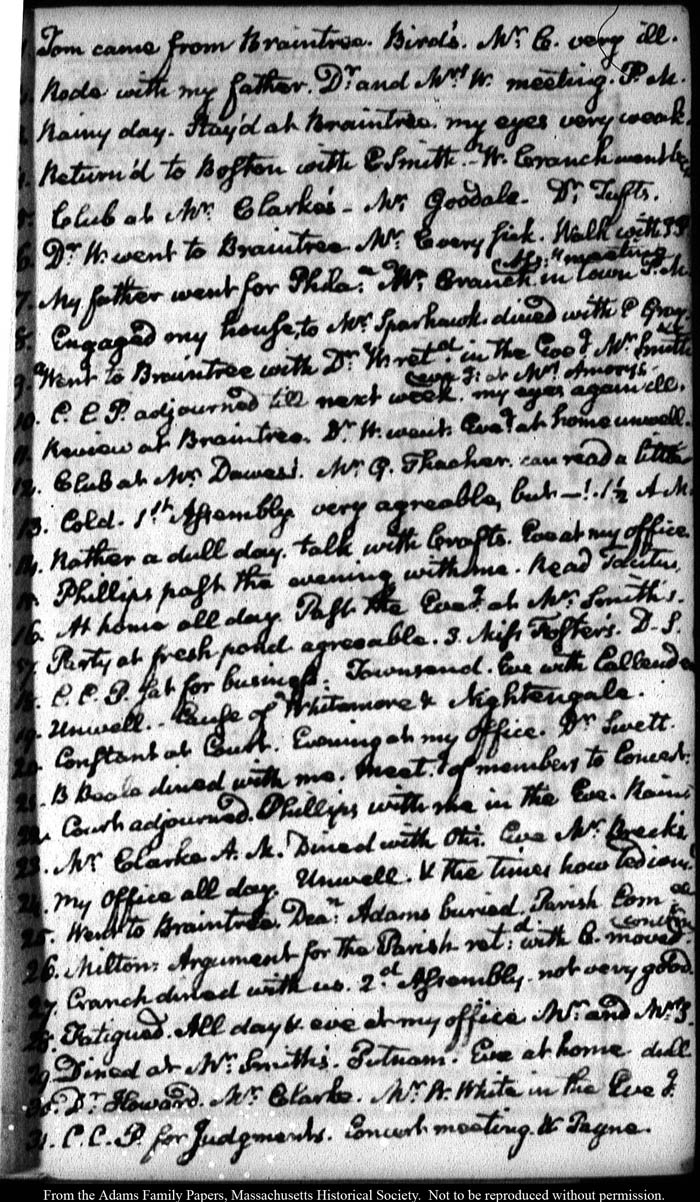 Tom came from Braintree. Bird's. Mr. C. very ill.
Rode with my father. Dr. and Mrs W. meeting. P.M.
Rainy day. Stay'd at Braintree. my eyes very weak.
Return'd to Boston with C Smith. W. Cranch went
5. Club at Mr. Clarke's - Mr. Goodale. Dr. Tufts.
6. Dr. W. went to Braintree Mr. C very sick. Walk with
Ass: meeting
7. My father went for Phila:a Mr. Cranch in town P.M
8. Engaged my house, to Mr. Sparhawk. dined with C Gray
9. Went to Braintree with Dr. W. ret.d in the Eve.g Mr. Smith's
Eve g: at Mrs Amory's
10. C. C. P. adjourned till next week. my eyes again ill.
11. Review at Braintree. Dr. W. went. Eve.g at home unwell.
12. Club at Mr. Dawes's. Mr. P. Thacher. can read a little
13. Cold. 1st Assembly very agreeable, but —! 1½ A M
14. Rather a dull day. talk with Crafts. Eve at my office
15. Phillips past the evening with me. Read Tacitus
16. At home all day. Past the Eve.g at Mr. Smith's.
17. Party at fresh pond agreeable. 3. Miss Foster's. D. S.
18. C. C. P. sat for business. Townsend. Eve with Callender
19. Unwell. Cause of Whitamore & Nightengale.
20. Constant at Court. Evening at my office. Dr. Swett.
21. B Beale dined with me. Meet.g of members to Concert.
22. Court adjourned. Phillips with me in the Eve. Rain
23. Mr. Clarke A. M. Dined with Otis. Eve Mr. Breck's
24. My Office all day. Unwell. & the times how tedious!
25. Went to Braintree. Dea.n Adams buried. Parish Com.ee
26. Milton: Argument for the Parish ret:d with C. moved
27. Cranch dined with us. 2.d Assembly. not very good
28. Fatigued. All day & eve at my office Mr. and Mrs
29. Dined at Mr. Smith's. Putnam. Eve at home dull
30. Dr. Howard. Mr. Clarke. Mr. W. White in the Eve g.
31. C. C. P. for Judgments. Concert meeting. W Payne.
From the Adams Family Papers, Massachusetts Historical Society. Not to be reproduced without permission.